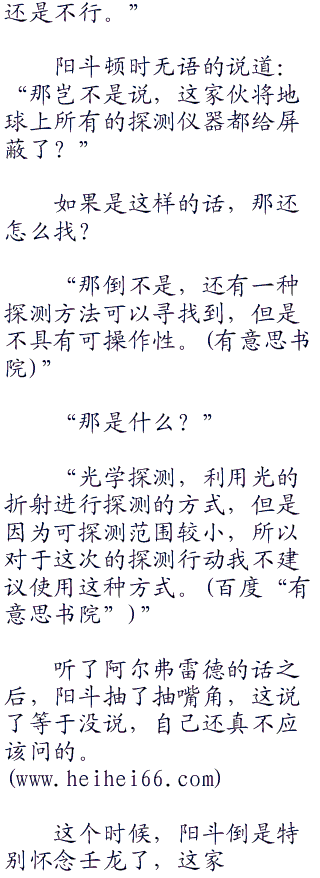 还是不行。”
阳斗顿时无语的说道：
“那岂不是说，这家伙将地
球上所有的探测仪器都给屏
蔽了？”
如果是这样的话，那还
怎么找？
“那倒不是，还有一种
探测方法可以寻找到，但是
不具有可操作性。(有意思书
院)”
“那是什么？”
“光学探测，利用光的
折射进行探测的方式，但是
因为可探测范围较小，所以
对于这次的探测行动我不建
议使用这种方式。(百度“有
意思书院”)”
听了阿尔弗雷德的话之
后，阳斗抽了抽嘴角，这说
了等于没说，自己还真不应
该问的。
(www.heihei66.com)
这个时候，阳斗倒是特
别怀念壬龙了，这家